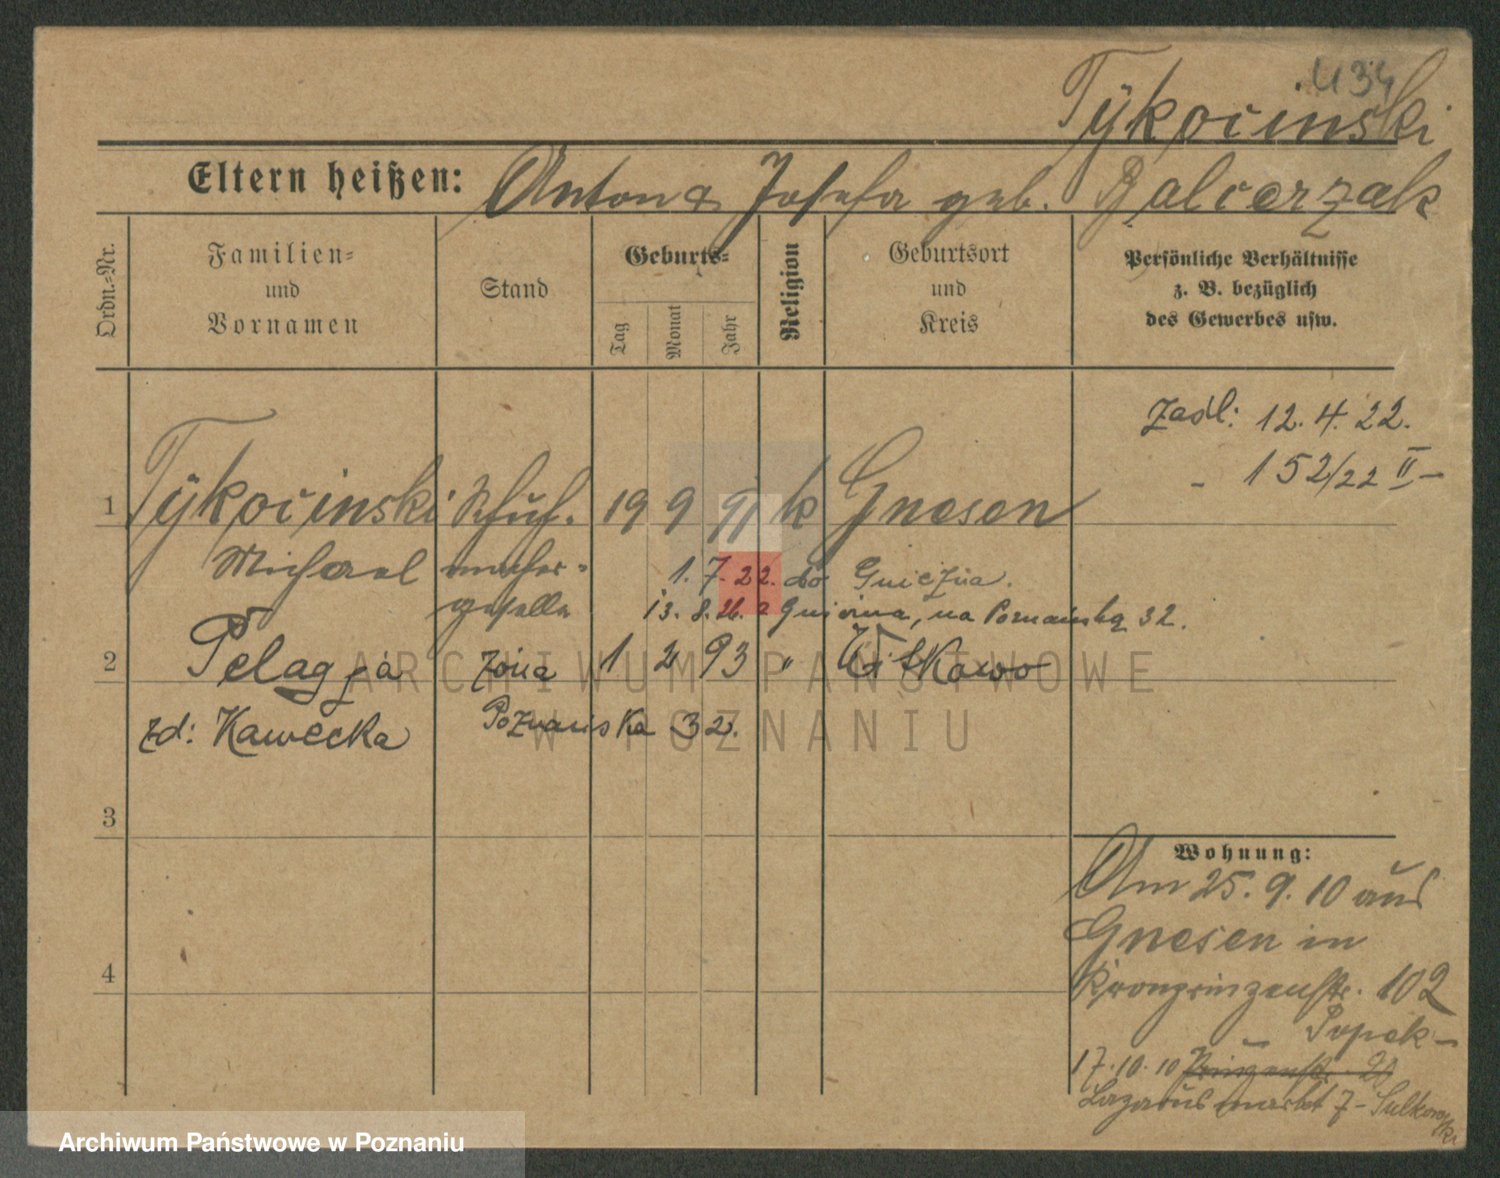 434
Tykocinski
Eltern heißen: Anton & Josefa geb. Balcerzak
Ordn.=Nr.
Familien=
und
Vornamen
Stand
Geburts=
Tag
Monat
Jahr
Religion
Geburtsort
und
Kreis
Persönliche Verhältnisse
z. B. bezüglich
des Gewerbes usw.
Zaśl: 12.4.22.
- 152/22 II -
1 Tykocinski Schuh- 19 9 91 k Gnesen
Michael macher=
geselle
1. 7. 22. do Gniezna.
13. 8. 26. z Gniezna, na Poznańską 32.
2 Pelagja żona 1 2 93 " Witkowo
zd: Kawecka Poznańska 32.
3
4
Wohnung:
Am 25. 9. 10 aus
Gnesen in
Kronprinzenstr. 102
- Popek -
17. 10. 10 Prinzenstr. 20
Lazarusmarkt 7 - Sulkowski
ARCHIWUM PAŃSTWOWE
W POZNANIU
Archiwum Państwowe w Poznaniu